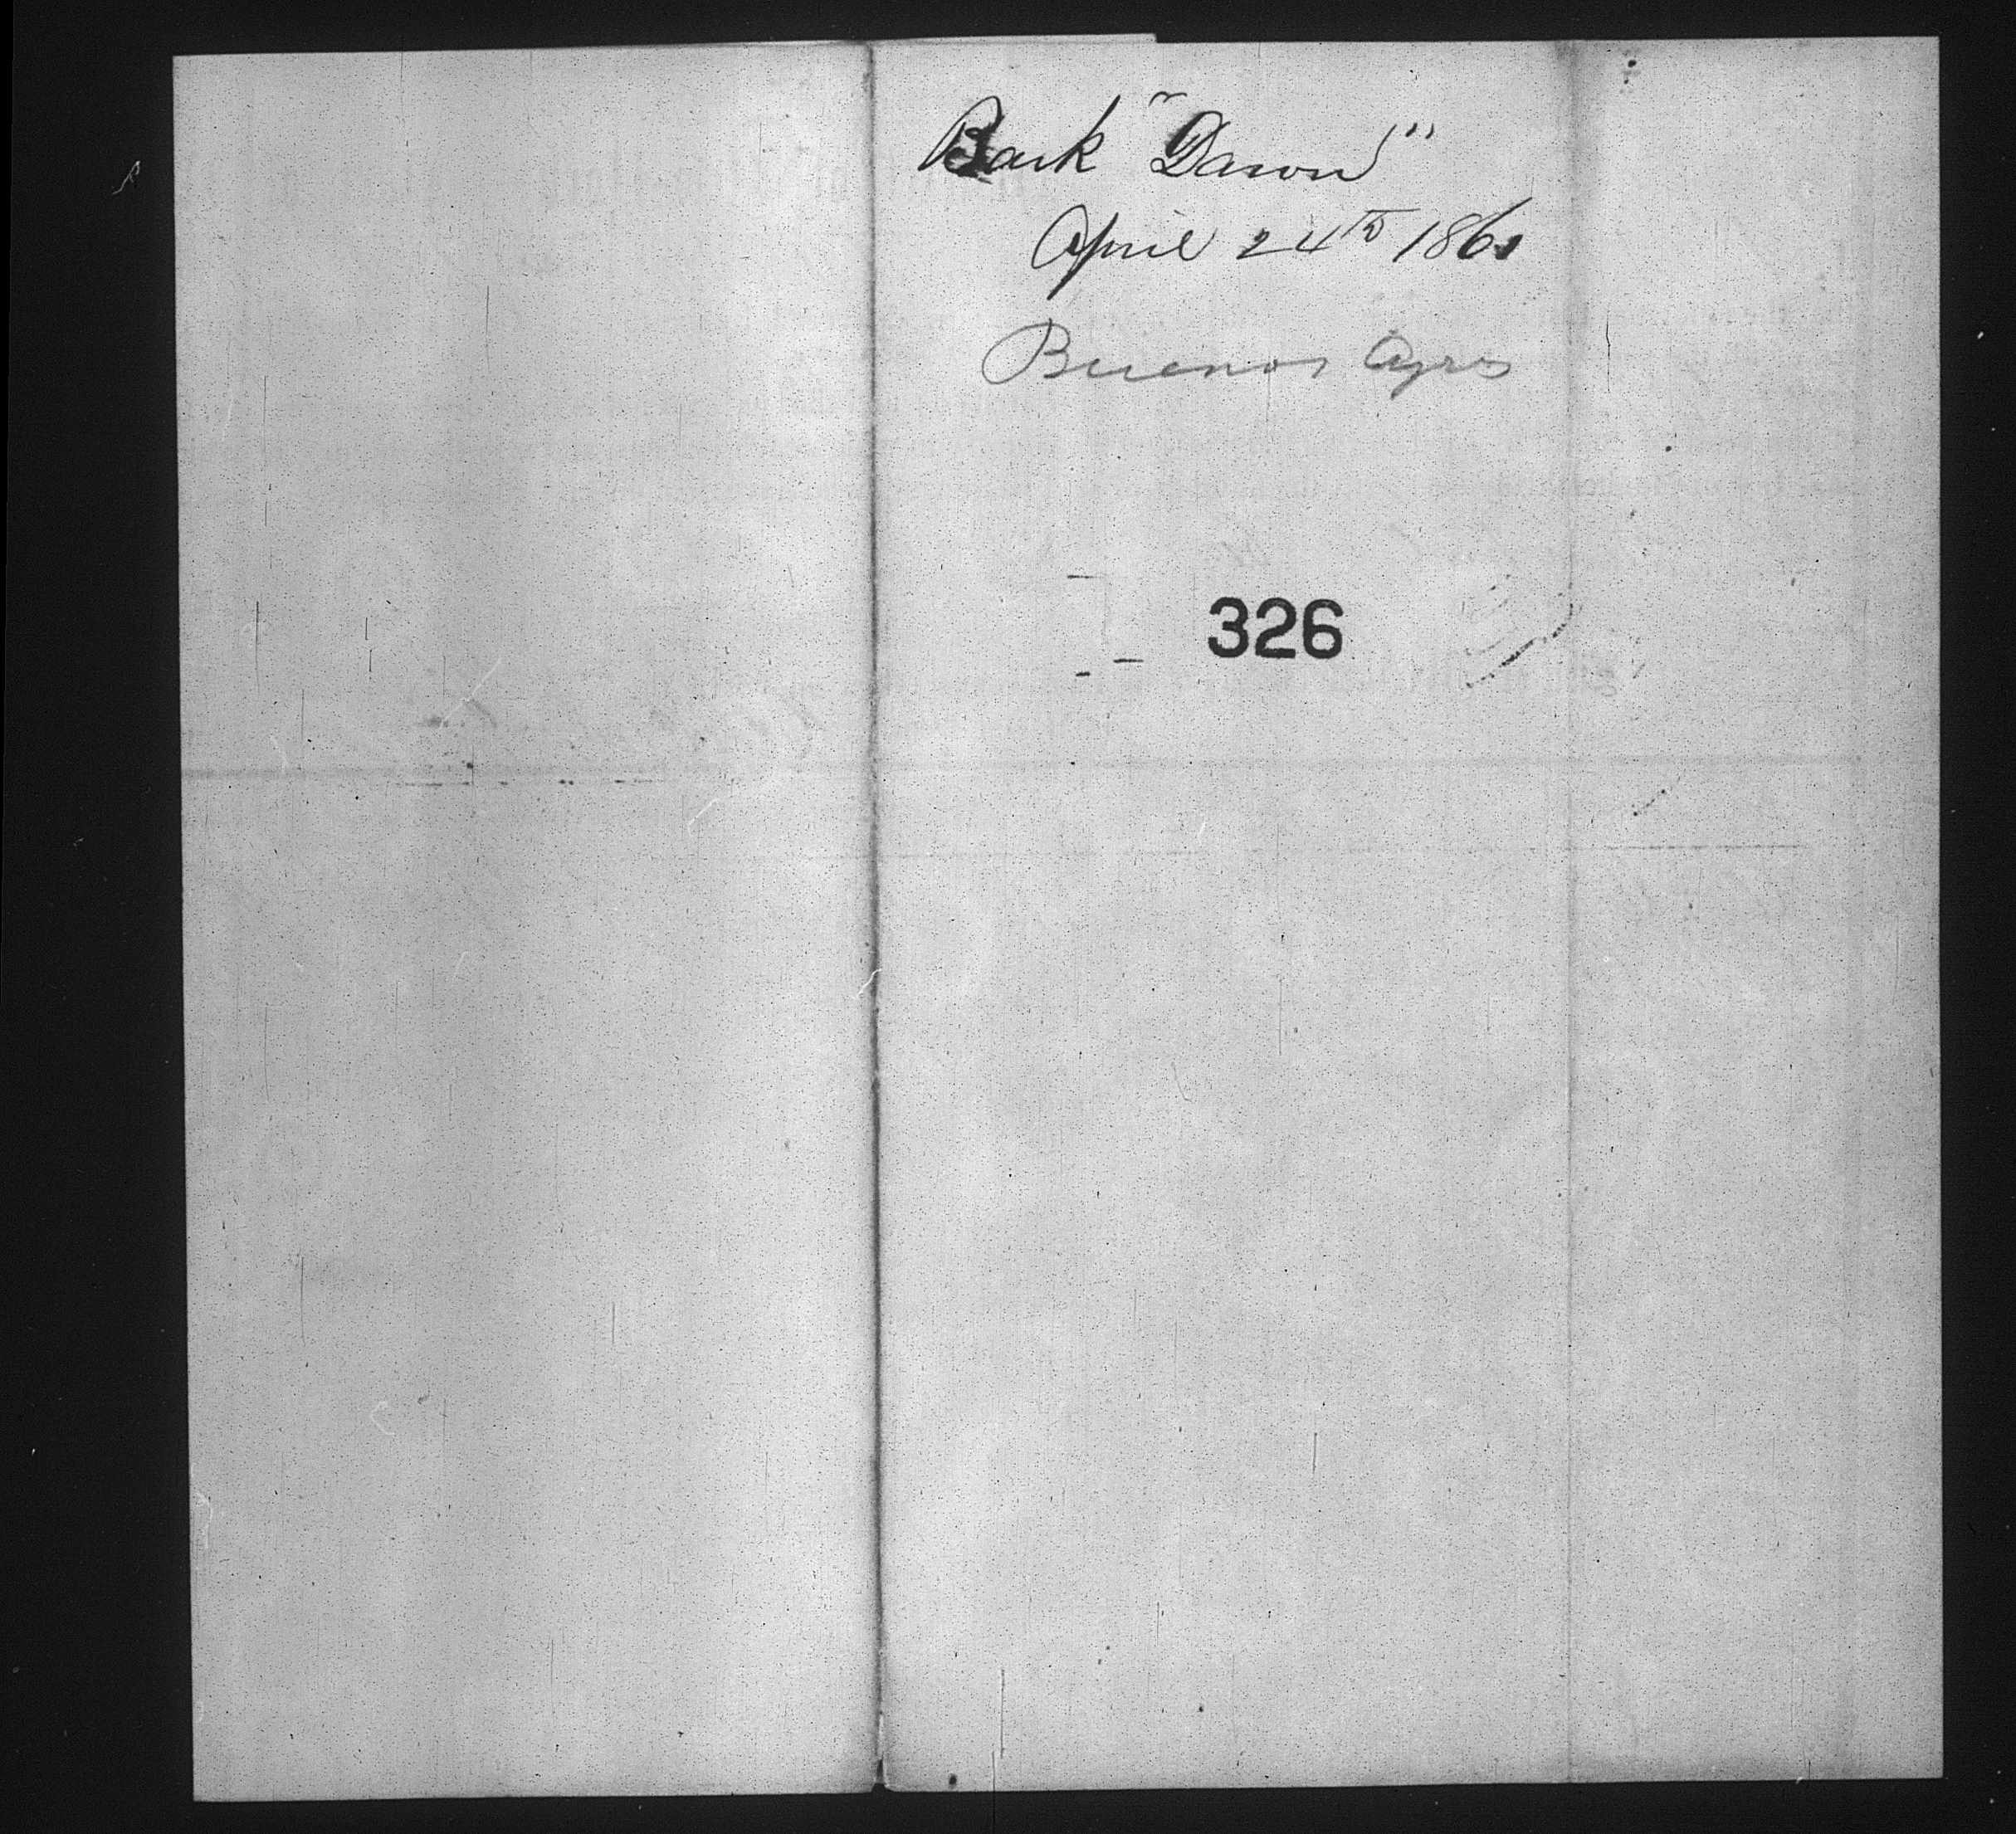 Bark "Dawn"
April 24th 1861
Buenos Ayres
326